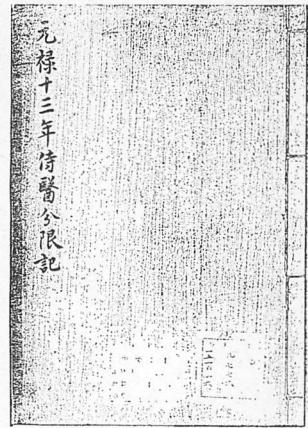 元禄十三年侍醫分限記